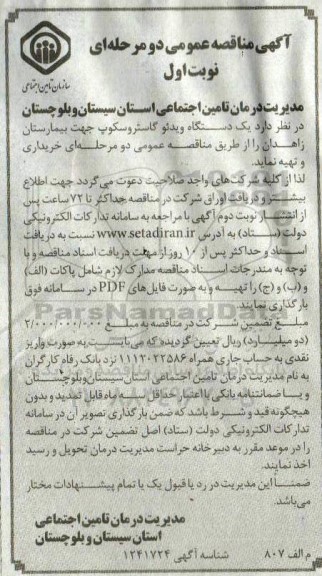 آگهی مناقصه عمومی دو مرحله‌ای
نوبت اول
سازمان تامین اجتماعی
مدیریت درمان تامین اجتماعی استان سیستان وبلوچستان
در نظر دارد یک دستگاه ویدئو گاستروسکوپ جهت بیمارستان
زاهدان را از طریق مناقصه عمومی دو مرحله‌ای خریداری
و تهیه نماید.
لذا از کلیه شرکت‌های واجد صلاحیت دعوت می گردد جهت اطلاع
بیشتر و دریافت اوراق شرکت در مناقصه حداکثر تا ۷۲ ساعت پس
از انتشار نوبت دوم آگهی با مراجعه به سامانه تدارکات الکترونیکی
دولت (ستاد) به آدرس www.setadiran.ir نسبت به دریافت
اسناد و حداکثر پس از ۱۰ روز از مهلت دریافت اسناد مناقصه و با
توجه به مندرجات اسناد مناقصه مدارک لازم شامل پاکات (الف)
و (ب) و (ج) را تهیه و به صورت فایل‌های PDF در سامانه فوق
بارگذاری نمایند.
ParsNamadData
مبلغ تضمین شرکت در مناقصه به مبلغ ۲/۰۰۰/۰۰۰/۰۰۰
(دو میلیارد) ریال تعیین گردیده که می بایست به صورت واریز
نقدی به حساب جاری همراه ۱۱۱۲۰۲۲۵۸۶ نزد بانک رفاه کارگران
به نام مدیریت درمان تامین اجتماعی استان سیستان وبلوچستان
و یا ضمانتنامه بانکی با اعتبار حداقل سه ماه قابل تمدید و بدون
هیچگونه قید و شرط باشد که ضمن بارگذاری تصویر آن در سامانه
تدارکات الکترونیکی دولت (ستاد) اصل تضمین شرکت در مناقصه
را در موعد مقرر به دبیرخانه حراست مدیریت درمان تحویل و رسید
اخذ نمایند.
ضمناً این مدیریت در رد یا قبول یک یا تمام پیشنهادات مختار
می‌باشد.
مدیریت درمان تامین اجتماعی
استان سیستان و بلوچستان
م الف ۸۰۷
شناسه آگهی ۱۲۴۱۷۲۴